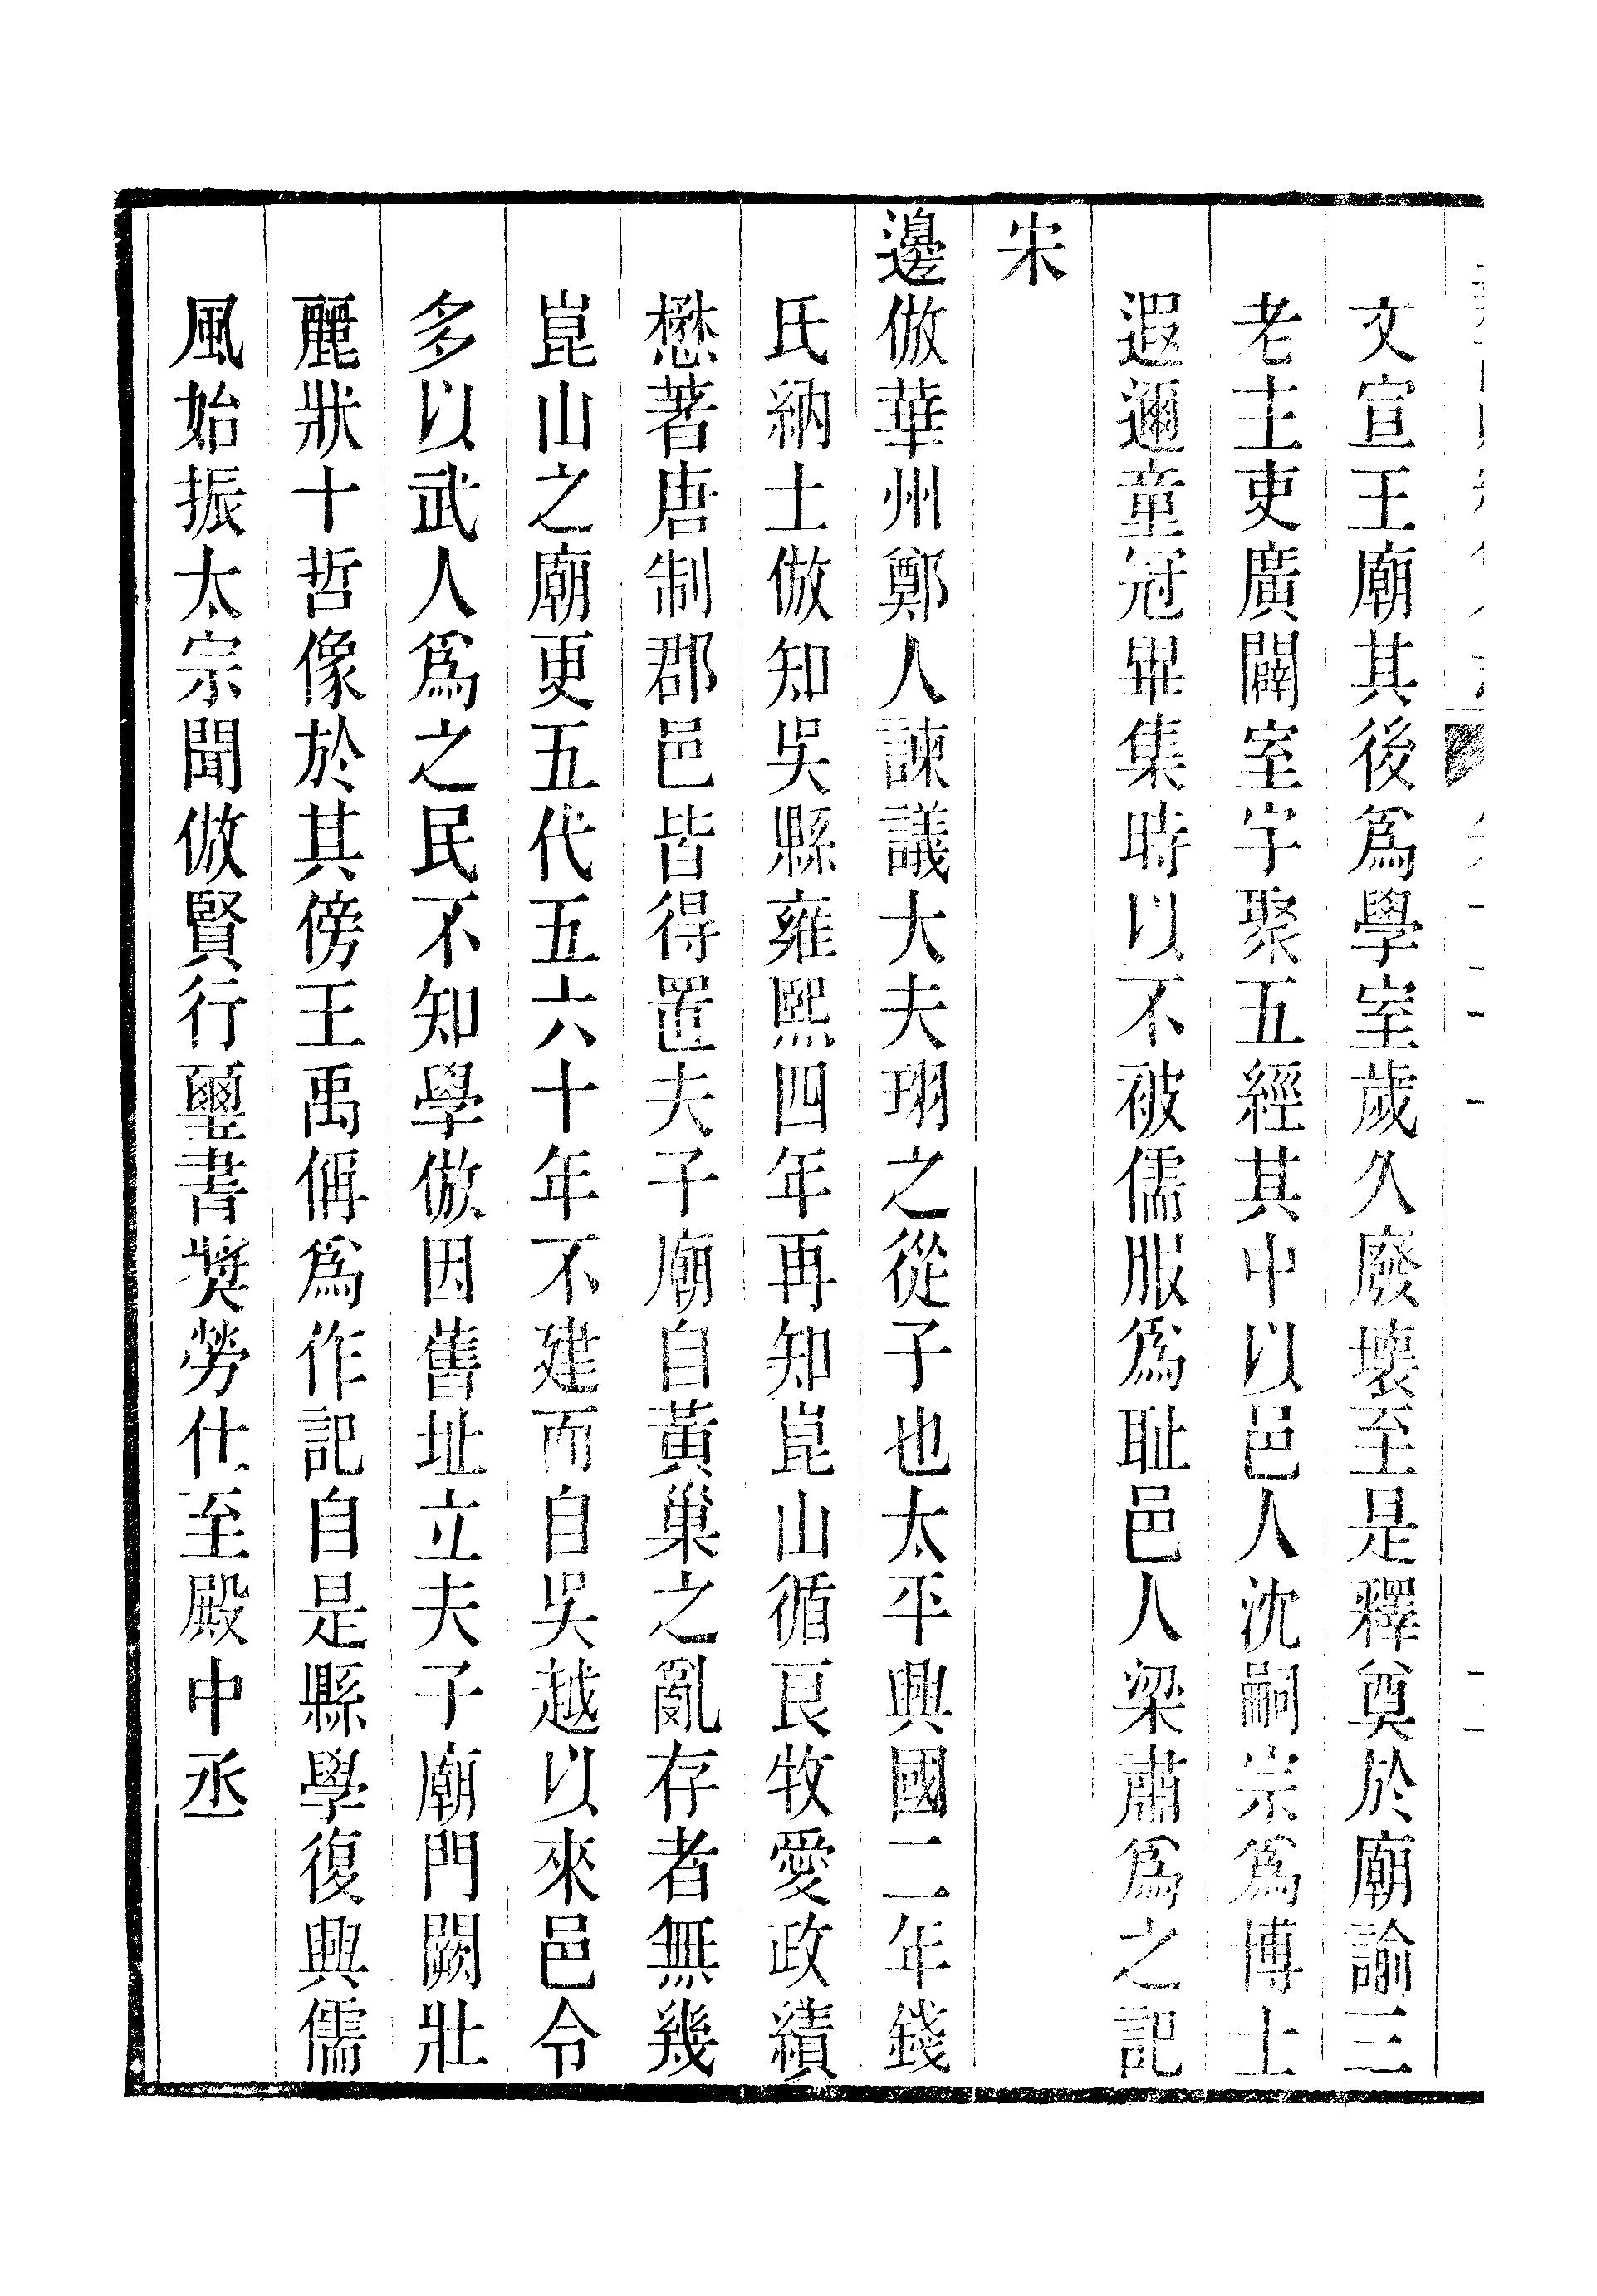 文宣王廟其後爲學室歲久廢壞至是釋奠於廟諭三
老主吏廣闢室宇聚五經其中以邑人沈嗣宗爲博士
遐邇童冠畢集時以不被儒服爲恥邑人梁肅爲之記
宋
邊倣華州鄭人諫議大夫珝之從子也太平興國二年錢
氏納土倣知吳縣雍熙四年再知崑山循良牧愛政績
懋著唐制郡邑皆得置夫子廟自黃巢之亂存者無幾
崑山之廟更五代五六十年不建而自吳越以來邑令
多以武人爲之民不知學倣因舊址立夫子廟門闕壯
麗狀十哲像於其傍王禹偁爲作記自是縣學復興儒
風始振太宗聞倣賢行璽書奬勞仕至殿中丞